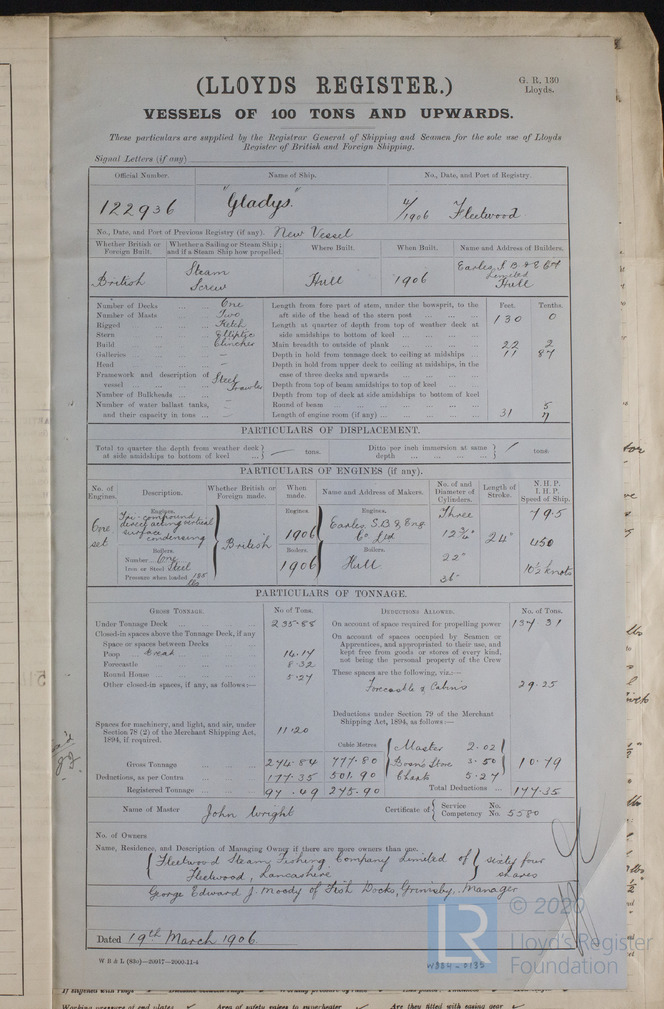 (LLOYDS REGISTER.)
G. R. 130
Lloyds.
VESSELS OF 100 TONS AND UPWARDS.
These particulars are supplied by the Registrar General of Shipping and Seamen for the sole use of Lloyds
Register of British and Foreign Shipping.
Signal Letters (if any)
Official Number. Name of Ship. No., Date, and Port of Registry.
122936 "Gladys." 4/1906 Fleetwood
No., Date, and Port of Previous Registry (if any). New Vessel
Whether British or Foreign Built. Whether a Sailing or Steam Ship; and if a Steam Ship how propelled. Where Built. When Built. Name and Address of Builders.
British Steam Screw Hull 1906 Earles S. B. & E Co Limited Hull
Number of Decks ... One Length from fore part of stem, under the bowsprit, to the Feet. Tenths.
Number of Masts ... Two aft side of the head of the stern post ... 130 0
Rigged ... Ketch Length at quarter of depth from top of weather deck at
Stern ... Elliptic side amidships to bottom of keel ...
Build ... Clincher Main breadth to outside of plank ... 22 2
Galleries ... — Depth in hold from tonnage deck to ceiling at midships ... 11 87
Head ... — Depth in hold from upper deck to ceiling at midships, in the
Framework and description of vessel ... Steel Trawler case of three decks and upwards
Depth from top of beam amidships to top of keel ...
Number of Bulkheads ... Depth from top of deck at side amidships to bottom of keel
Number of water ballast tanks, Round of beam ... 5
and their capacity in tons ... Length of engine room (if any) ... 31 7
PARTICULARS OF DISPLACEMENT.
Total to quarter the depth from weather deck at side amidships to bottom of keel ... — tons. Ditto per inch immersion at same depth ... tons.
PARTICULARS OF ENGINES (if any).
No. of Engines. Description. Whether British or Foreign made. When made. Name and Address of Makers. No. of and Diameter of Cylinders. Length of Stroke. N. H. P. I. H. P. Speed of Ship.
Engines. Engines. Engines. Three 79.5
One set Tri-compound direct acting vertical surface condensing British 1906 Earles, S. B & Eng Co Ltd 12 3/4" 24" 450
Boilers. Boilers. Boilers.
Number One 1906 Hull 22" 10 1/2 knots
Iron or Steel Steel
Pressure when loaded lbs 36"
PARTICULARS OF TONNAGE.
GROSS TONNAGE. No of Tons. DEDUCTIONS ALLOWED. No. of Tons.
Under Tonnage Deck ... 235.88 On account of space required for propelling power 137 31
Closed-in spaces above the Tonnage Deck, if any On account of spaces occupied by Seamen or
Space or spaces between Decks ... Apprentices, and appropriated to their use, and
Poop Break ... 14.17 kept free from goods or stores of every kind,
Forecastle ... 8.32 not being the personal property of the Crew
Round House ... 5.27 These spaces are the following, viz.:—
Other closed-in spaces, if any, as follows:— Forecastle & Cabins 29.25
Deductions under Section 79 of the Merchant
Spaces for machinery, and light, and air, under Shipping Act, 1894, as follows:—
Section 78 (2) of the Merchant Shipping Act, 1894, if required. 11.20
Cubic Metres. Master 2.02
Gross Tonnage ... 274.84 777.80 Bosns Store 3.50 10.79
Deductions, as per Contra ... 177.35 501.90 Charts 5.27
Registered Tonnage ... 97.49 275.90 Total Deductions ... 177.35
Name of Master John Wright Certificate of Service No. Competency No. 5580
No. of Owners
Name, Residence, and Description of Managing Owner if there are more owners than one.
Fleetwood Steam Fishing Company Limited of sixty four
Fleetwood, Lancashire shares
George Edward J. Moody of Fish Docks, Grimsby, Manager
Dated 19th March 1906.
W B & L (83o)—20917—2000-11-4
W384-0135
LR
© 2020
Lloyd's Register
Foundation